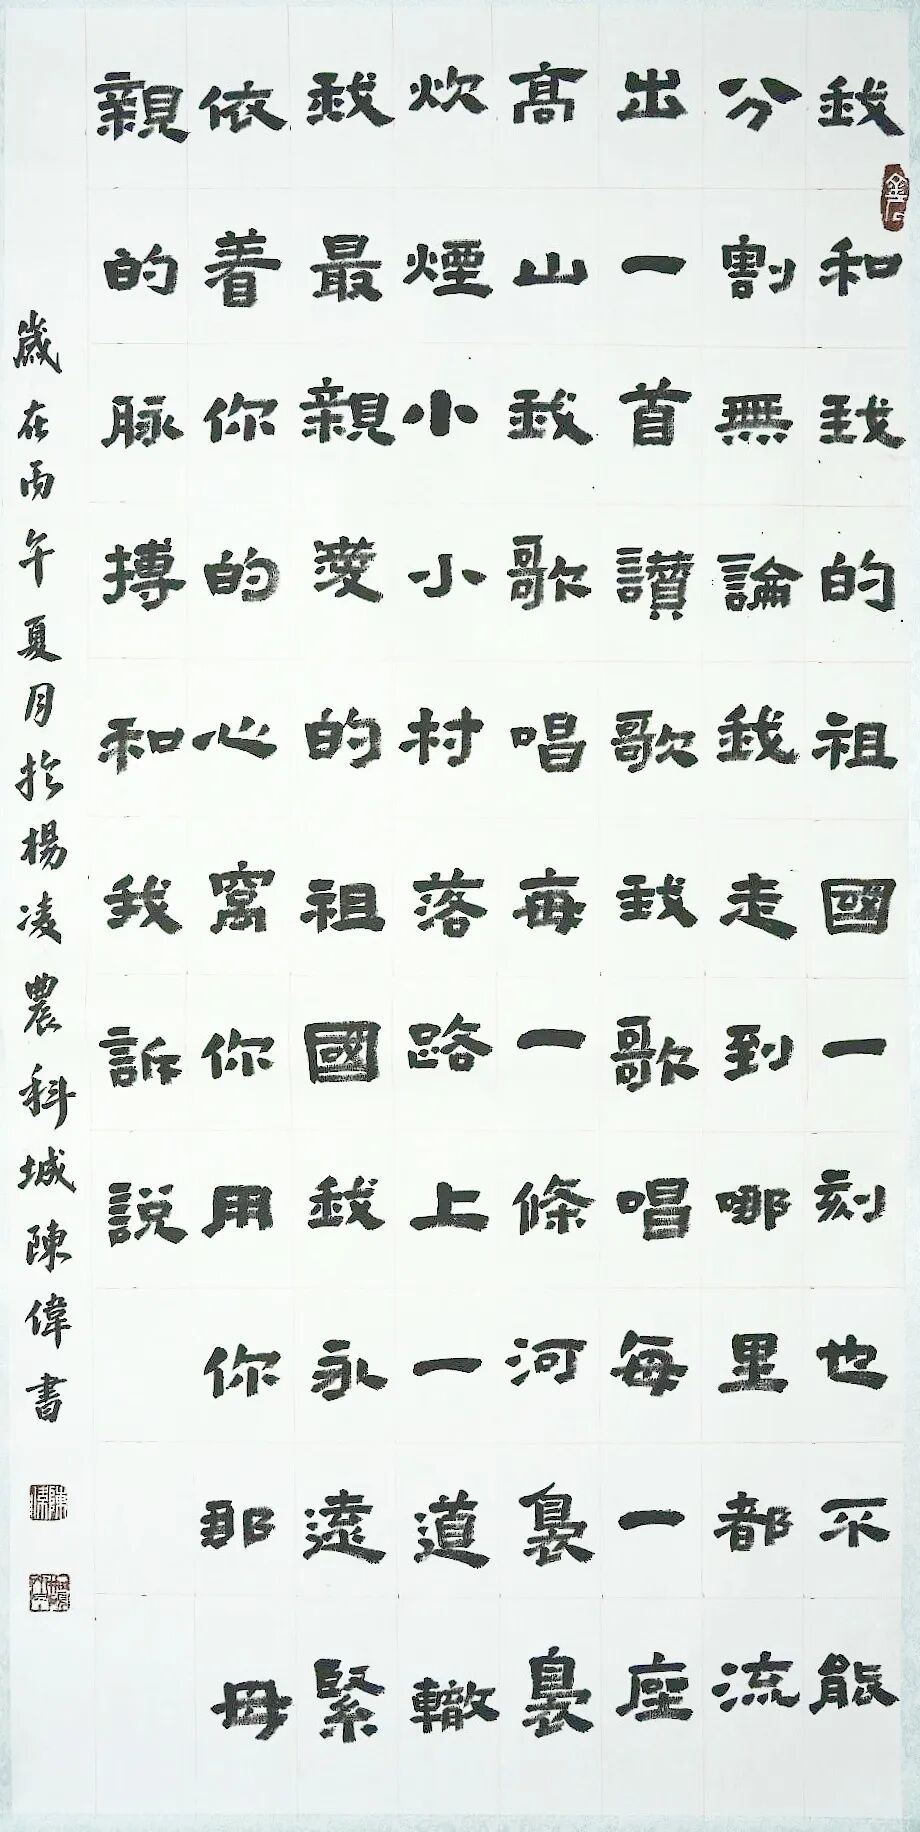 我和我的祖國一刻也不能
分割無論我走到哪里都流
出一首讚歌我歌唱每一座
高山我歌唱每一條河裊裊
炊煙小小村落路上一道轍
我最親愛的祖國我永遠緊
依着你的心窩你用你那母
親的脉搏和我訴説
歲在丙午夏月於楊凌農科城陳偉書